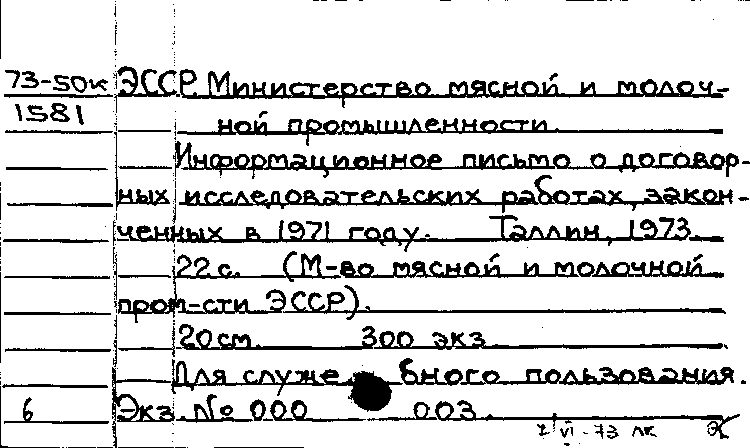 73-50к ЭССР. Министерство мясной и молоч-
1581 ной промышленности.
Информационное письмо о договор-
ных исследовательских работах, закон-
ченных в 1971 году. Таллин, 1973.
22 с. (М-во мясной и молочной
пром-сти ЭССР).
20 см. 300 экз.
Для служебного пользования.
6 Экз. № 000 003.
VI-73 ЛК